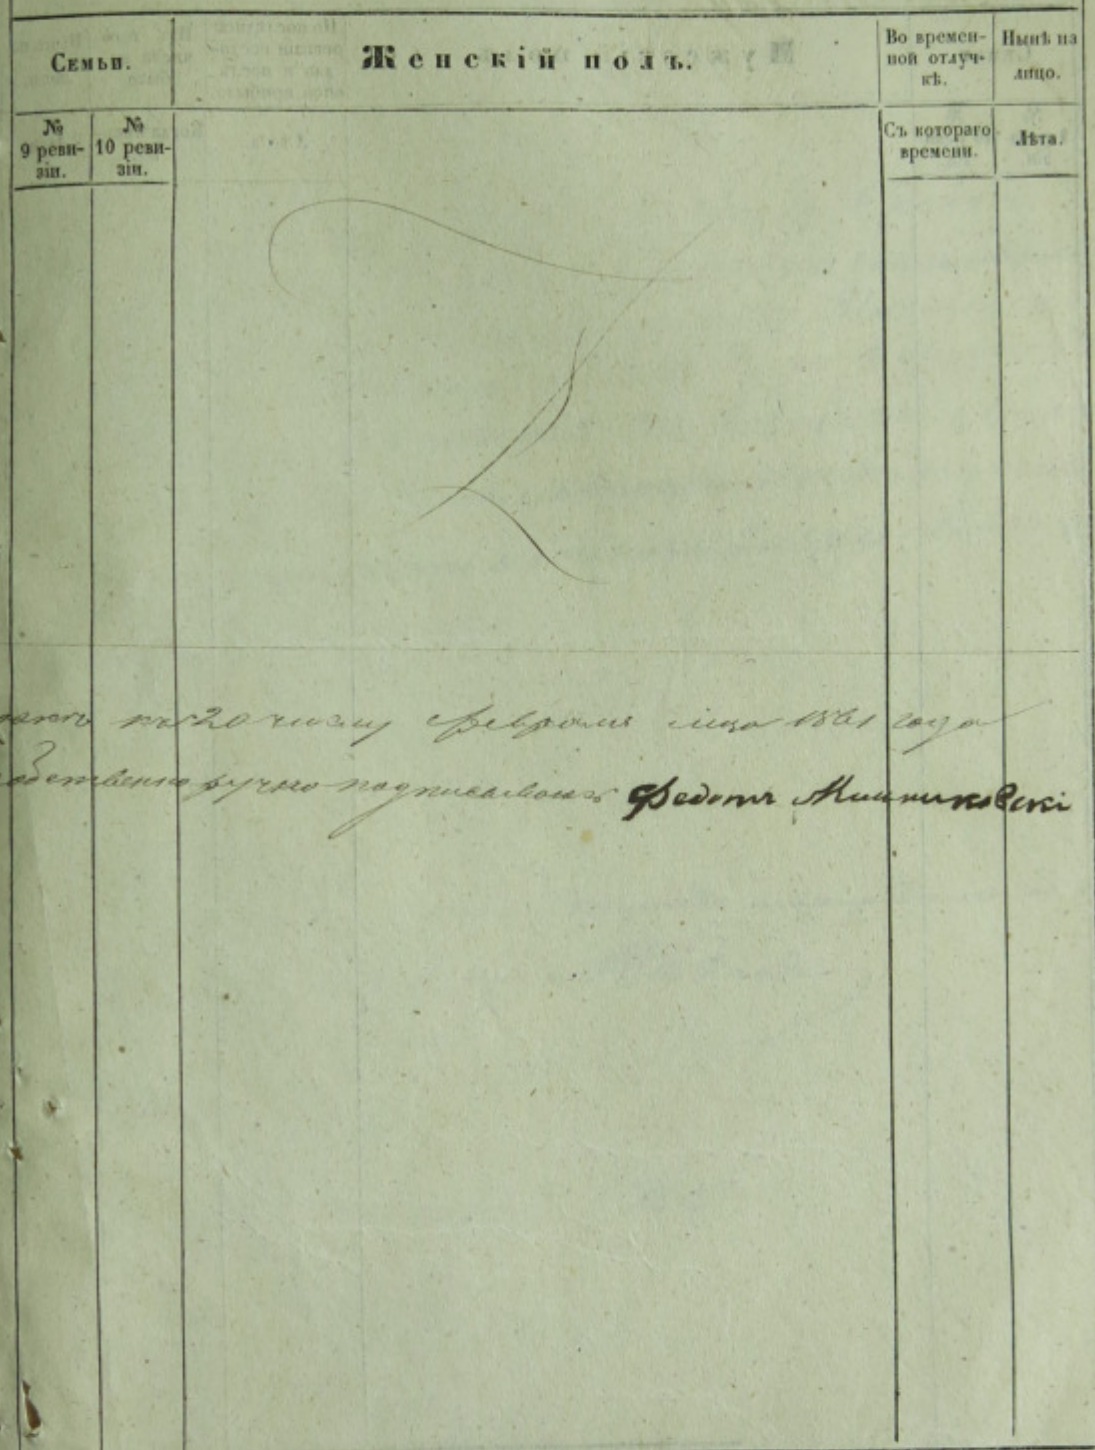 Семьи.
Женскій полъ.
Во времен-
ной отлуч-
кѣ.
Нынѣ на
лицо.
№
9 реви-
зіи.
№
10 реви-
зіи.
Съ котораго
времени.
Лѣта.
20 числу февраля 1861 года
ручно подписалъ Федотъ